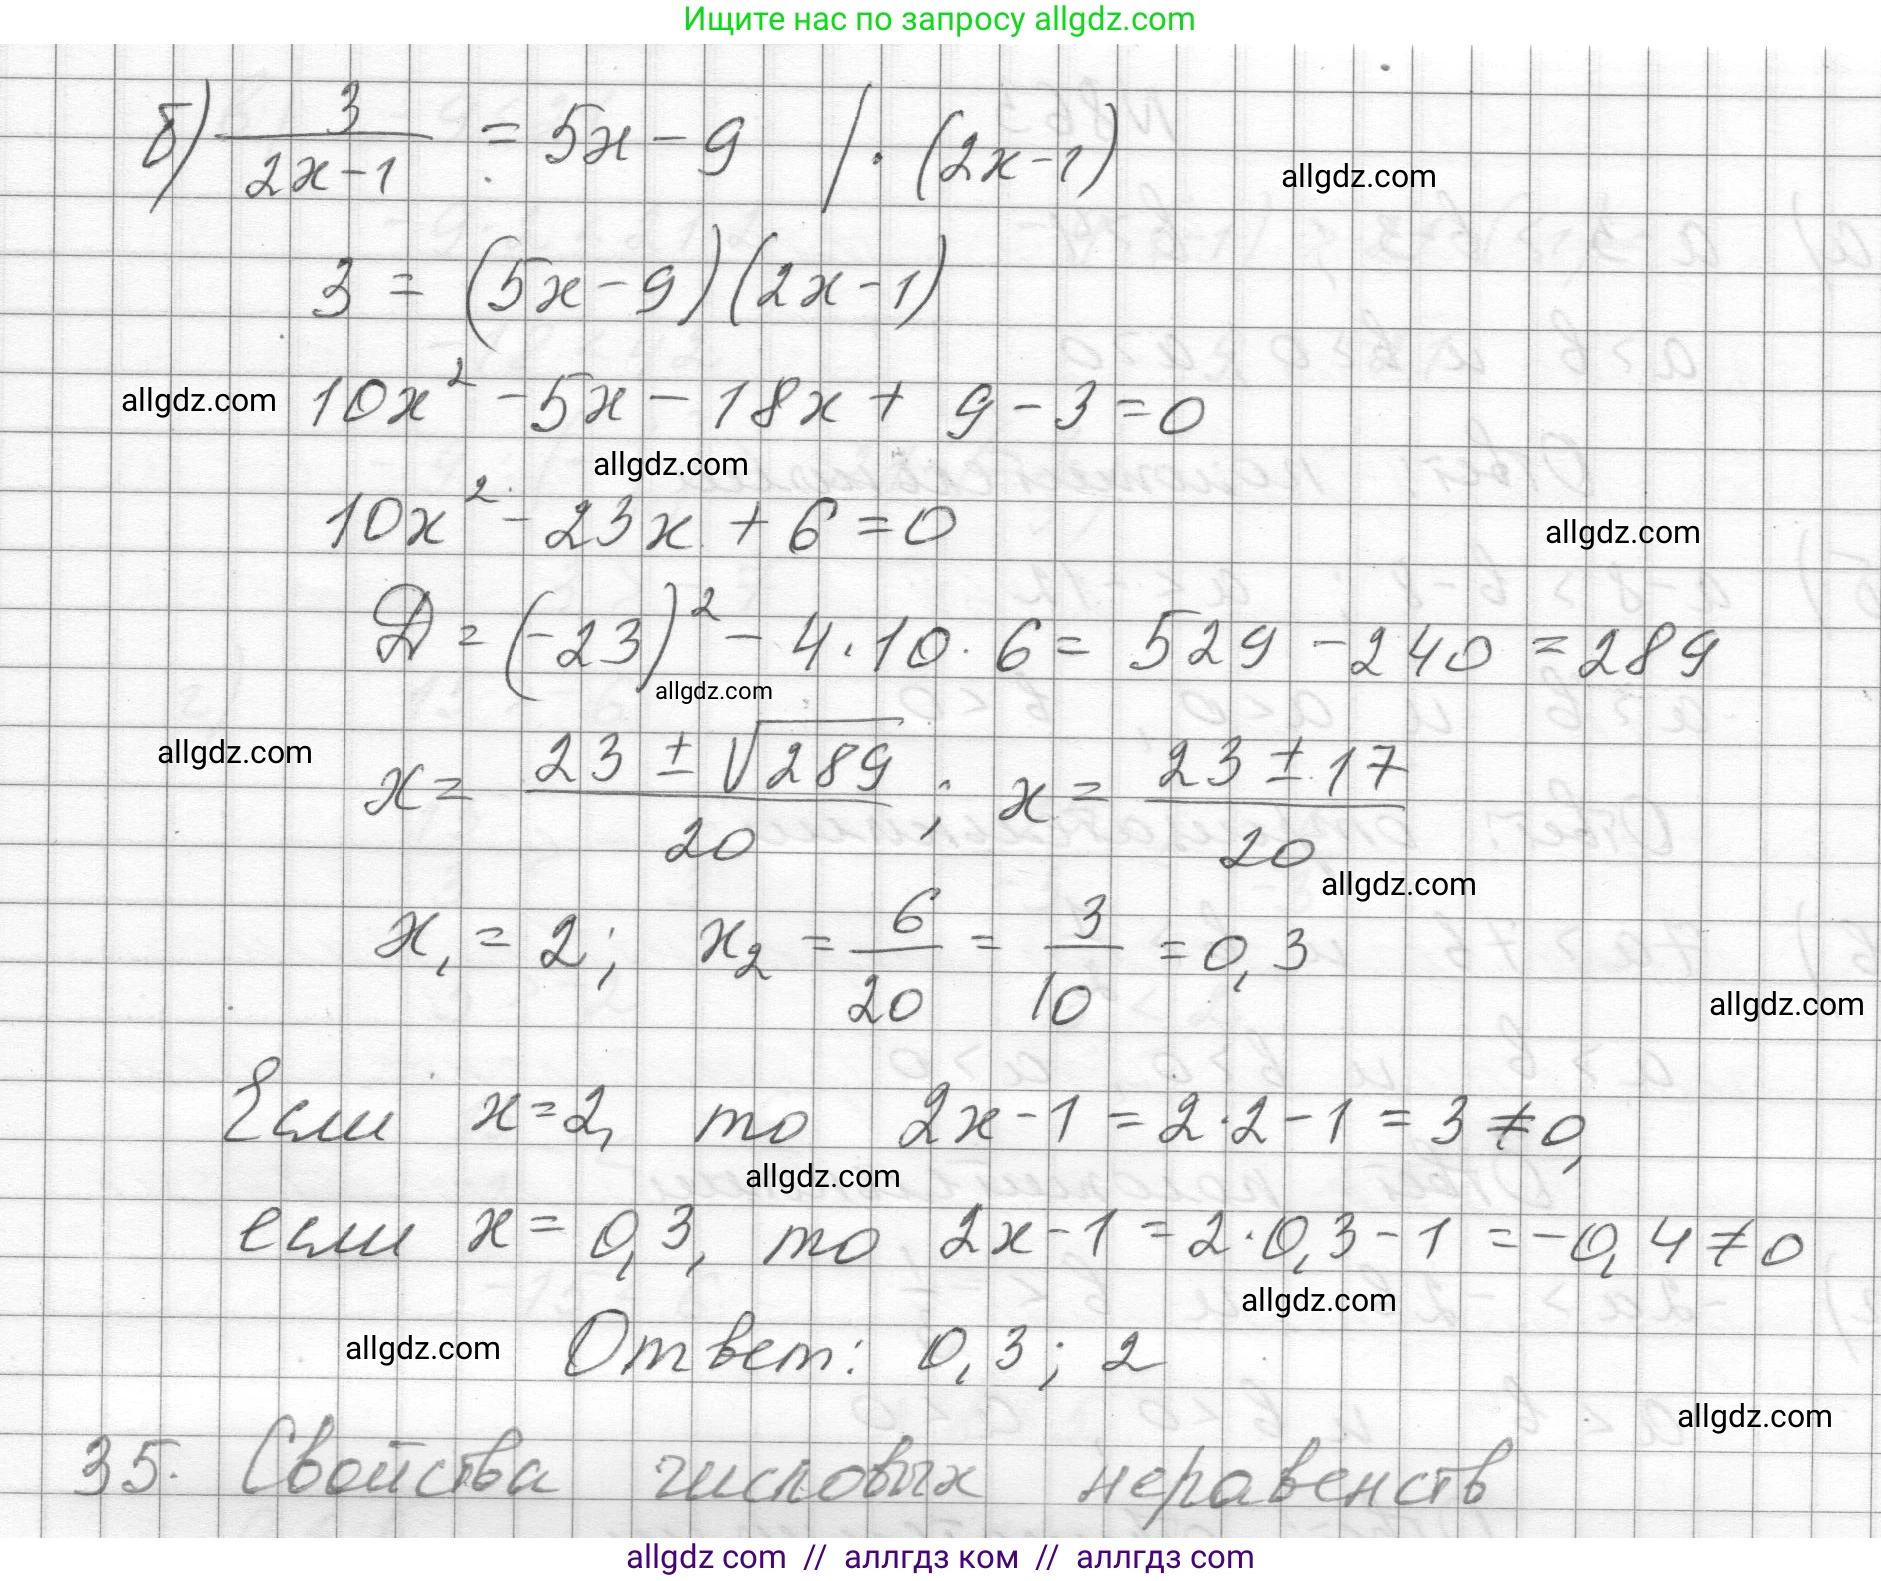 Ищите нас по запросу allgdz.com
б) 3/(2x-1) = 5x - 9 / · (2x-1)
allgdz.com
3 = (5x-9)(2x-1)
allgdz.com
10x² - 5x - 18x + 9 - 3 = 0
allgdz.com
10x² - 23x + 6 = 0
allgdz.com
Д = (-23)² - 4·10·6 = 529 - 240 = 289
allgdz.com
allgdz.com
x = (23 ± √289)/20 ; x = (23 ± 17)/20
allgdz.com
x₁ = 2; x₂ = 6/20 = 3/10 = 0,3
allgdz.com
Если x=2, то 2x-1 = 2·2-1 = 3 ≠ 0,
allgdz.com
если x = 0,3, то 2x-1 = 2·0,3-1 = -0,4 ≠ 0
allgdz.com
allgdz.com
Ответ: 0,3; 2
allgdz.com
35. Свойства числовых неравенств
allgdz com // аллгдз ком // аллгдз com